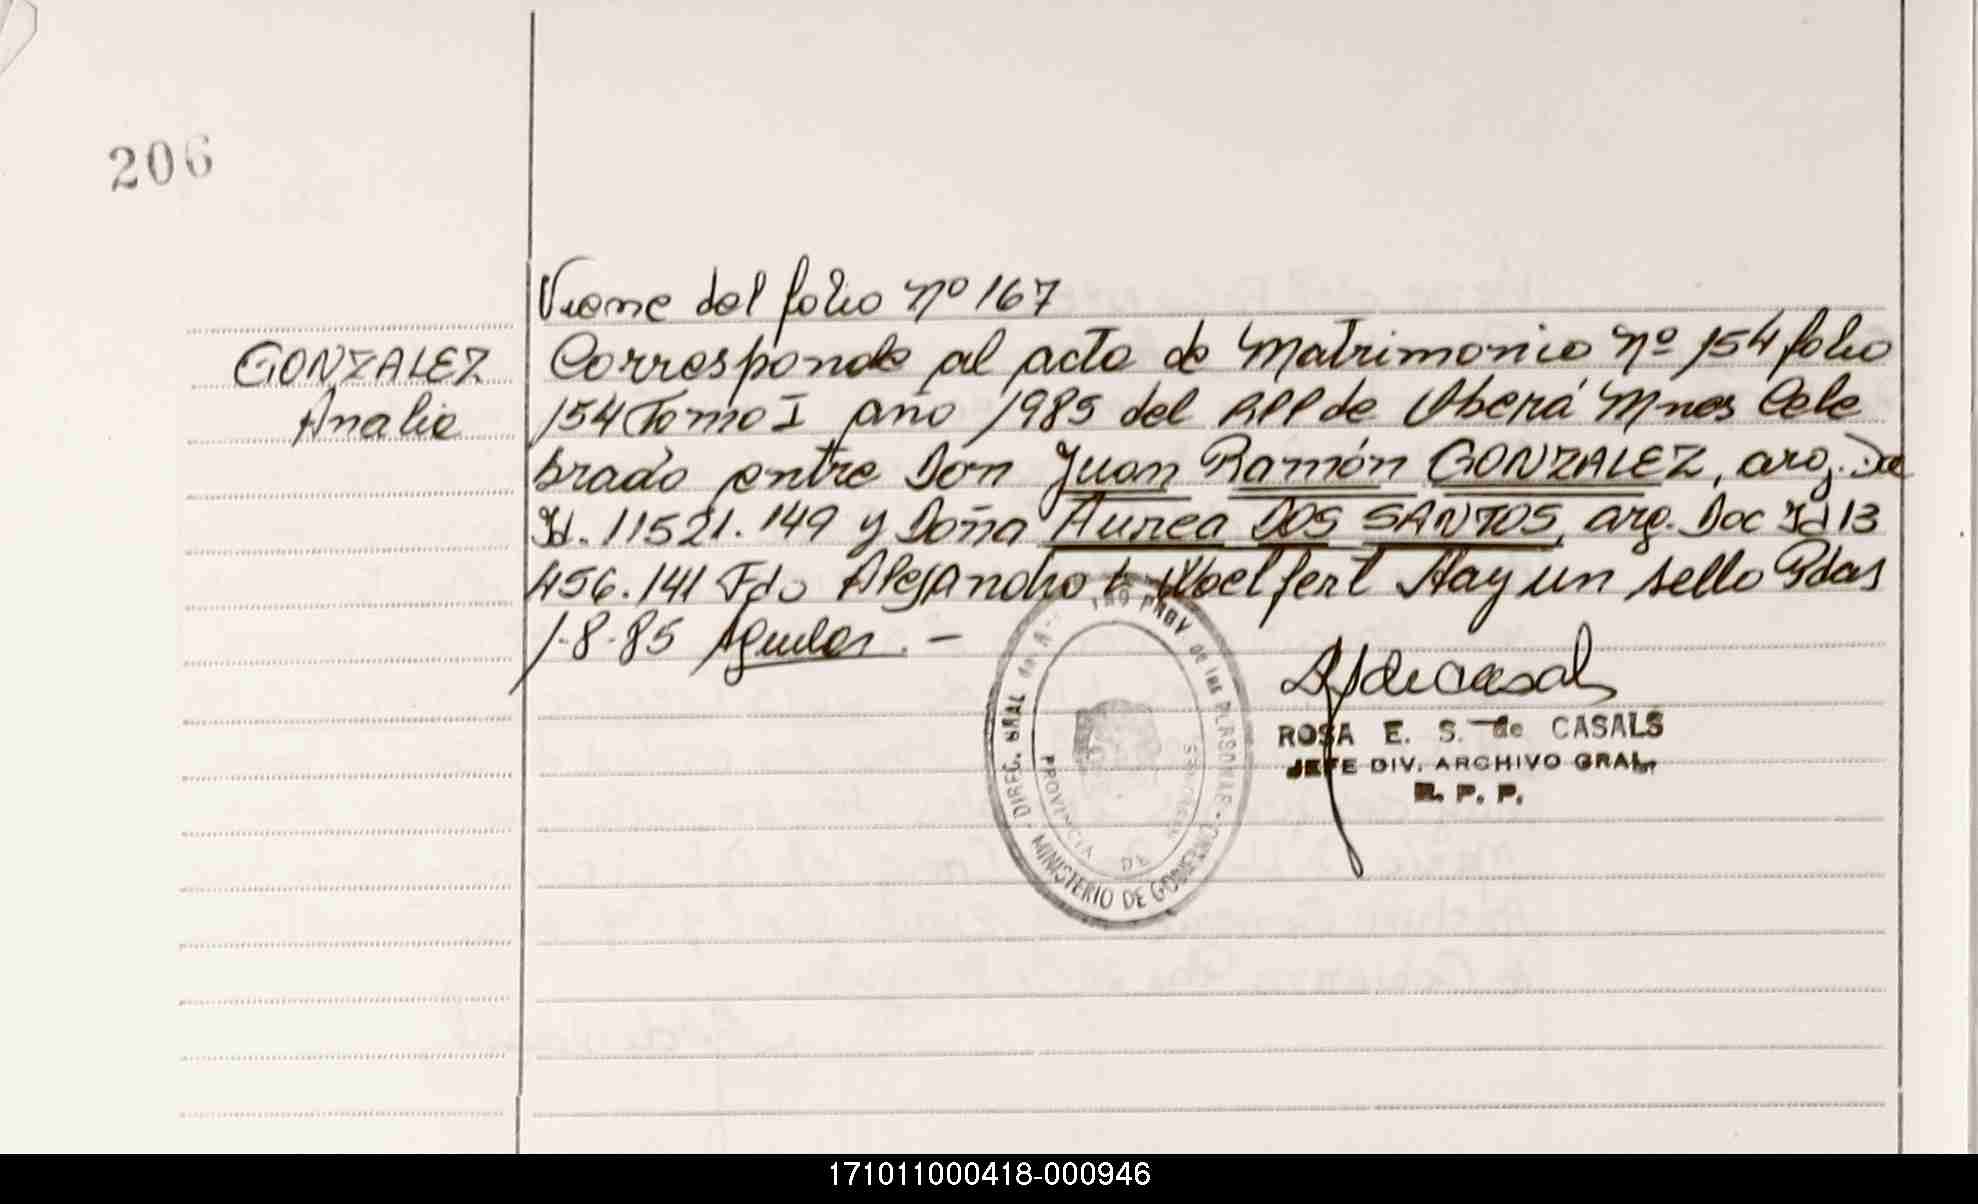 206
Viene del folio nº 167
GONZALEZ
Analia
Corresponde al acta de Matrimonio nº 154 folio
154 Tomo I año 1985 del RPP de Oberá Mnes Cele
brado entre Don Juan Ramón GONZALEZ, arg. Doc
Id. 11521.149 y Doña Aurea DOS SANTOS, arg. Doc Id 13
456.141 Fdo Alejandro Woelfert Hay un sello Pdas
1-8-85 Aguilar. —
DIREC. GRAL PROV de las PERSONAS - MINISTERIO DE GOBIERNO
PROVINCIA DE MISIONES
ROSA E. S. de CASALS
JEFE DIV. ARCHIVO GRAL.
R. P. P.
171011000418-000946